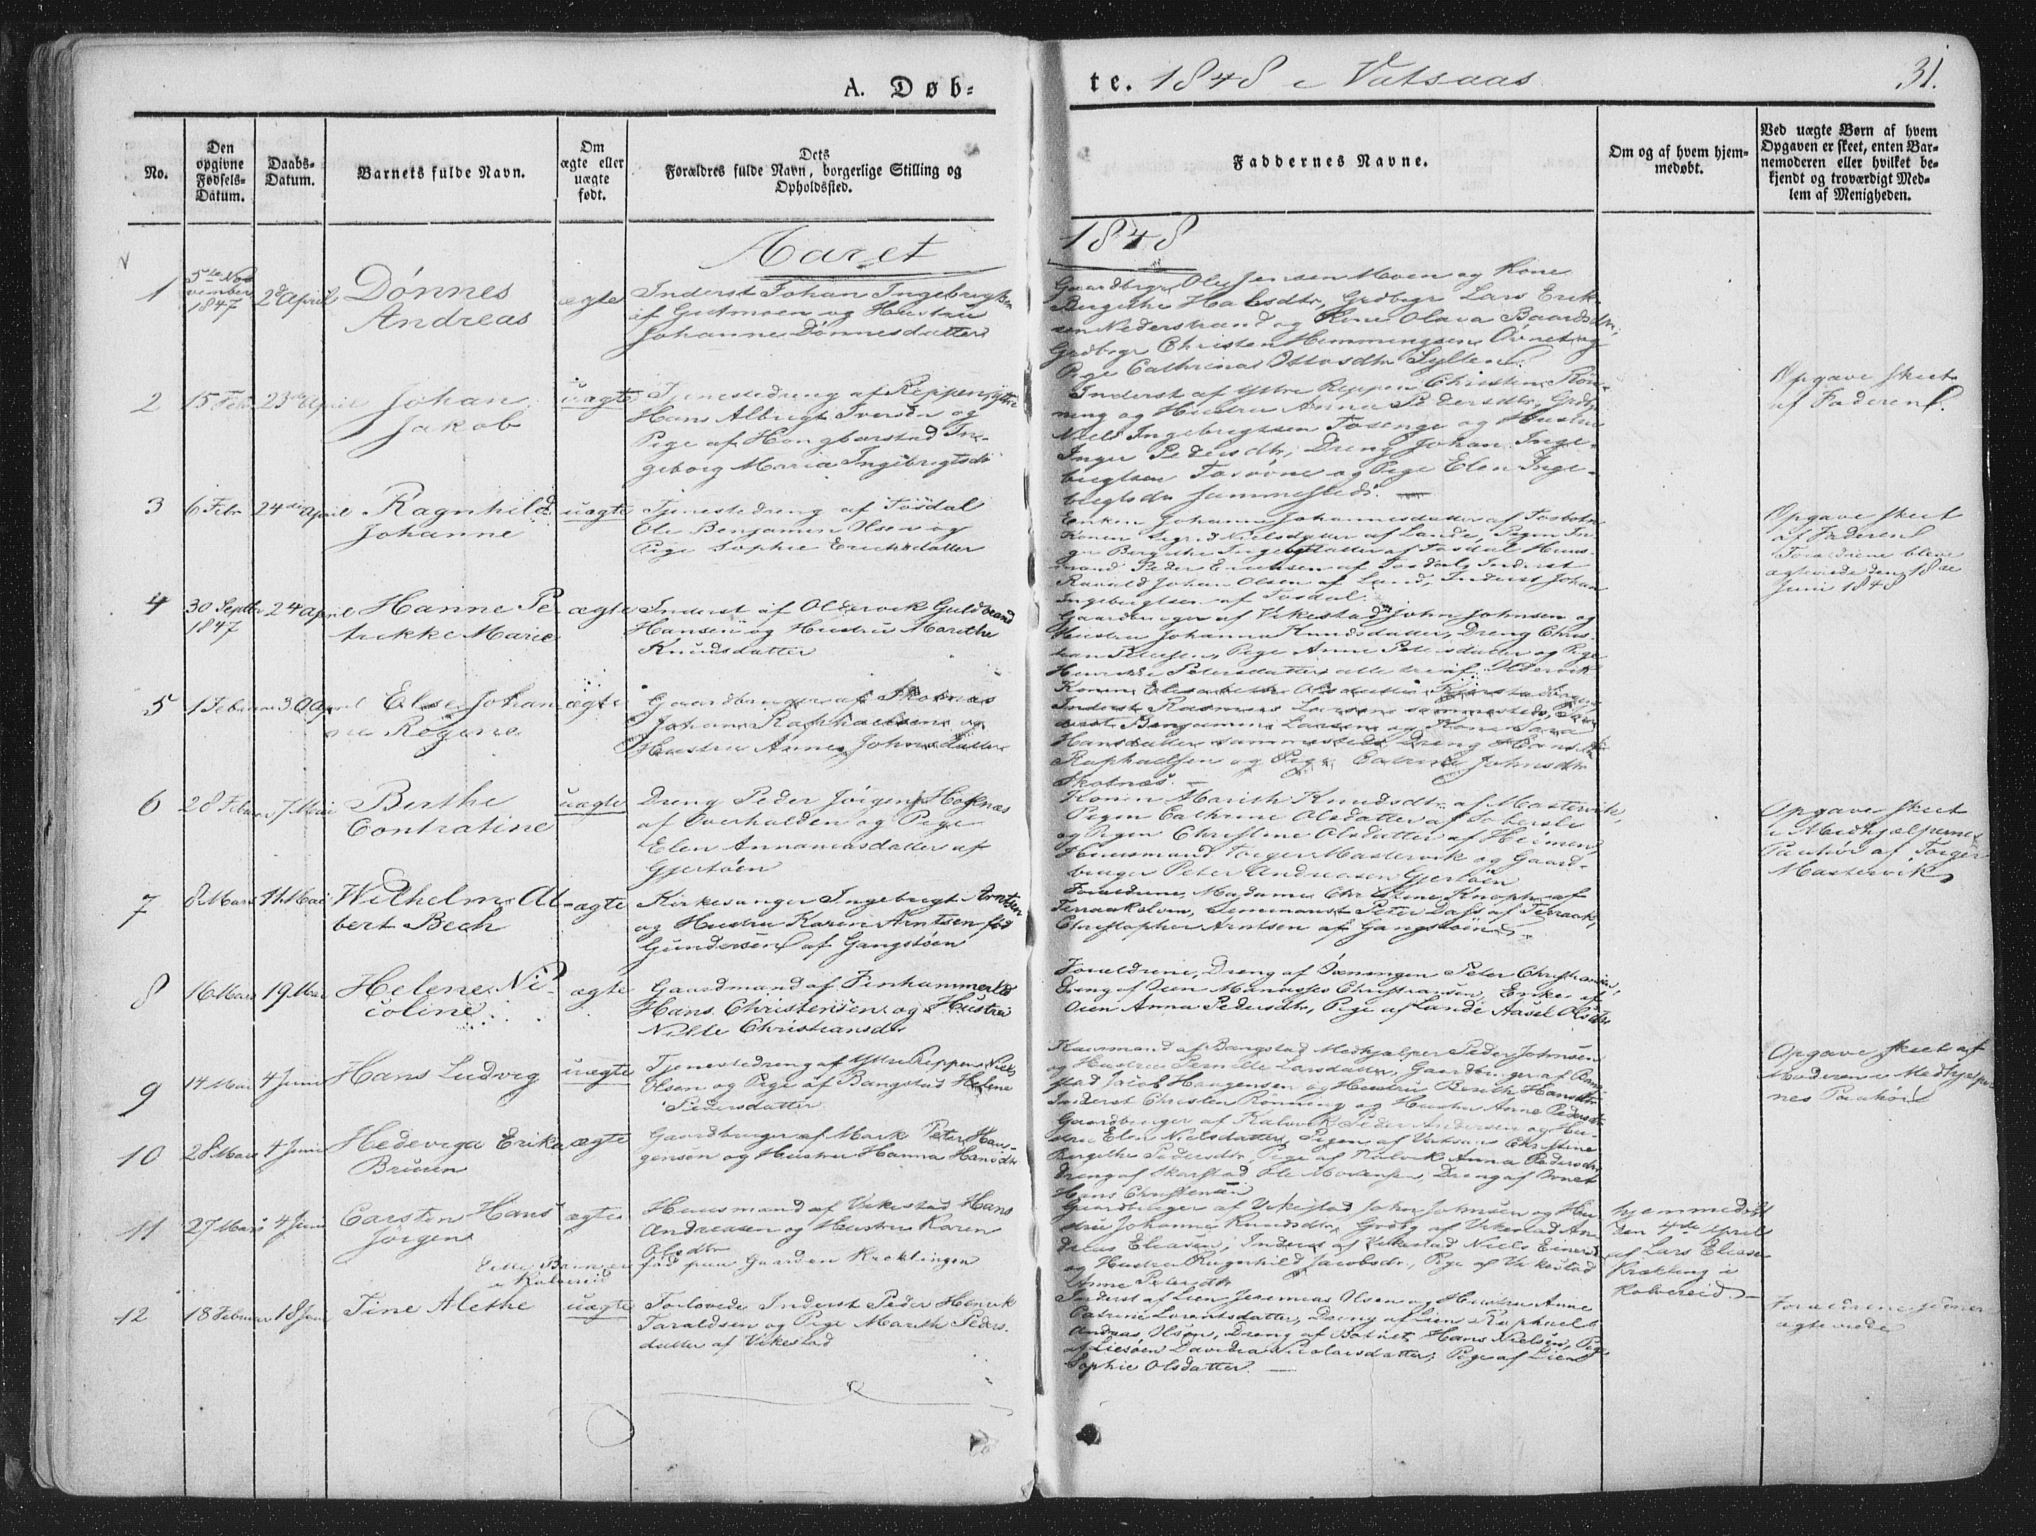 A. Døb-
te. 1848 i Vatsaas
31.
No.
Den
opgivne
Fødsels-
Datum.
Daabs-
Datum.
Barnets fulde Navn.
Om
ægte eller
uægte
født.
Dets
Forældres fulde Navn, borgerlige Stilling og
Opholdssted.
Faddernes Navne.
Om og af hvem hjem-
medøbt.
Ved uægte Børn af hvem
Opgaven er skeet, enten Bar-
nemoderen eller hvilket be-
kjendt og troværdigt Med-
lem af Menigheden.
Aaret
1848
1
5te No-
vember
1847
2d April
Dønnes
Andreas
ægte
Inderst Johan Ingebrigtsen
af Gutmoen og Hustru
Johanne Dønnesdatter
Gaardbrgr Ole Jensen Moen og Kone
Bergithe Halsdtr, Grdbrgr Lars Erik-
sen Nederstrand og Kone Olava Baardsdtr,
Grdbrgr Christen Hemmingsen Øvnet og
Pige Cathrina Ottosdtr Sylten
2
15 Febr
23de April
Johan
Jakob
uægte
Tjenestedreng af Reppen ytre
Hans Albrigt Iversen og
Pige af Hongbarstad In-
geborg Maria Ingebrigtsdr
Inderst af Yttre Reppen Christen Røn-
ning og Hustru Anna Pedersdtr, Grdbr
Niels Ingebrigtsen Tosenge og Hustru
Inger Pedersdtr, Dreng Johan Inge-
brigtsen og Pige Elen Inge-
brigtsdr sammesteds.
Opgave skeet
af Faderen
3
6 Febr
24de April
Ragnhild
Johanne
uægte
Tjenestedreng af Tosdal
Ole Benjamin Olsen og
Pige Sophie Erichsdatter
Enken Johanna Johannesdatter af Tosbotn
Konen Sigrid Nielsdatter af Lande, Pigen In-
ger Bergithe Ingebrigtsdatter af Tosdal Huus-
mand Peder Erichsen af Tosdal, Inderst
Ravald Johan Olsen af Lund, Inderst Johan
Ingebrigtsen af Tosdal.
Opgave skeet
af Faderen
Forældrene bleve
ægteviede den 18de
Juni 1848
4
30 Septbr
1847
24 April
Hanne Pe-
trikke Marie
ægte
Inderst af Oldervik Guldbrand
Hansen og Hustru Marithe
Knudsdatter
Gaardbruger af Vikestad John Johnsen og
Hustru Johanna Knudsdatter, Dreng Chris-
tian Petersen, Pige Anne Petersdatter og Pige
Henrikke Petersdatter alle tre af Oldervik
5
1 Februar
30 April
Else Johan-
na Rogine
ægte
Gaardbruger af Skotnæs
Johan Raphaelsen og
Hustru Anne Johnsdatter
Konen Elisabeth Olsdatter
Inderst Rasmus Larsen sammesteds, In-
derst Benjamin Larsen og Kone Sara
Hansdatter sammesteds Dreng Hans
Raphaelsen og Pige Catrine Johnsdtr
Skotnæs.
6
28 Febr
7 Mai
Berthe
Contratine
uægte
Dreng Peder Jørgen Hofnæs
af Overhalden og Pige
Elen Annaniasdatter af
Gjertøen
Konen Marith Knudsdtr af Mastervik,
Pigen Cathrine Olsdatter af
og Pigen Christine Olsdatter af Heimen,
Huusmand Torger Mastervik og Gaard-
bruger Peter Andreasen Gjertøen
Opgave skeet
i Medhjælpernes
Paahør af Torger
Mastervik
7
8 Mars
11 Mai
Wilhelm Al-
bert Bech
ægte
Kirkesanger Ingebrigt Arntsen
og Hustru Karen Arntsen fød
Gundersen af Gangstøen
Forældrene, Madame Christine Knoph af
Terraakolven, Lensmand Peter Dass af Terraak,
Christopher Arntsen af Gangstøen
8
16 Mars
19 Mai
Helene Ni-
coline
ægte
Gaardmand af Finhammeren
Hans Christensen og Hustru
Nille Christiansdr
Forældrene, Dreng af Peter Christiansen,
Dreng af Oien Manasses Christiansen, Enke af
Oien Anna Pedersdtr, Pige af Lande Aasel Olsdtr
9
14 Mai
4 Juni
Hans Ludvig
uægte
Tjenestedreng af Yttre Reppen Niels
Olsen og Pige af Bangstad Helene
Pedersdatter
Kaarmand af Bangstad Medhjælper Peder Johnsen
og Hustru Pernille Larsdatter, Gaardbruger af Ban-
stad Jacob Haagensen og Hustru Berith Hansdtr
Inderst Christen Rønning og Hustru Anne Pedersdtr
Opgave skeet af
Moderen i Medhjælper-
nes Paahør
10
28 Mars
4 Juni
Hedeviga Erika
Bruun
ægte
Gaardbruger af Mork Peter Haa-
gensen og Hustru Hanna Hansdtr
Gaardbruger af Kalvik Peder Andersen og Hu-
stru Elen Nielsdatter, Pigen af Vatsaas Christine
Bergithe Pedersdtr, Pige af Kalvik Anna Pedersdtr,
Dreng af Skarstad Ole Mortensen, Dreng af Øvnet
Hans Christensen
11
27 Mars
4 Juni
Carsten Hans
Jørgen
ægte
Huusmand af Vikestad Hans
Andreasen og Hustru Karen
Olsdtr
fød paa Gaarden Kræklingen
i Kolvereid
Gaardbruger af Vikestad John Johnsen og Hu-
stru Johanna Knudsdtr, Grdbrg af Vikestad An-
dreas Eliasen, Inderst af Vikestad Niels Einersen
og Hustru Ragnhild Jacobsdtr, Pige af Vikestad
Anne Petersdtr
hjemmedøbt
den 4de April
af Lars Eliasen
Krækling i
Kolvereid
12
18 Februar
18 Juni
Tine Alethe
uægte
Forlovede Inderst Peder Henrik
Taraldsen og Pige Marith Peders-
datter af Vikestad
Inderst af Lien Jeremias Olsen og Hustru Anne
Catrine Lorentsdatter, Dreng af Lien Raphael
Andreas Olsen, Dreng af Botnet Hans Nielsen, Pige
af Liesøen Davidia Nicolaisdatter, Pige af Lien
Sophie Olsdatter.
Forældrene
ægteviede